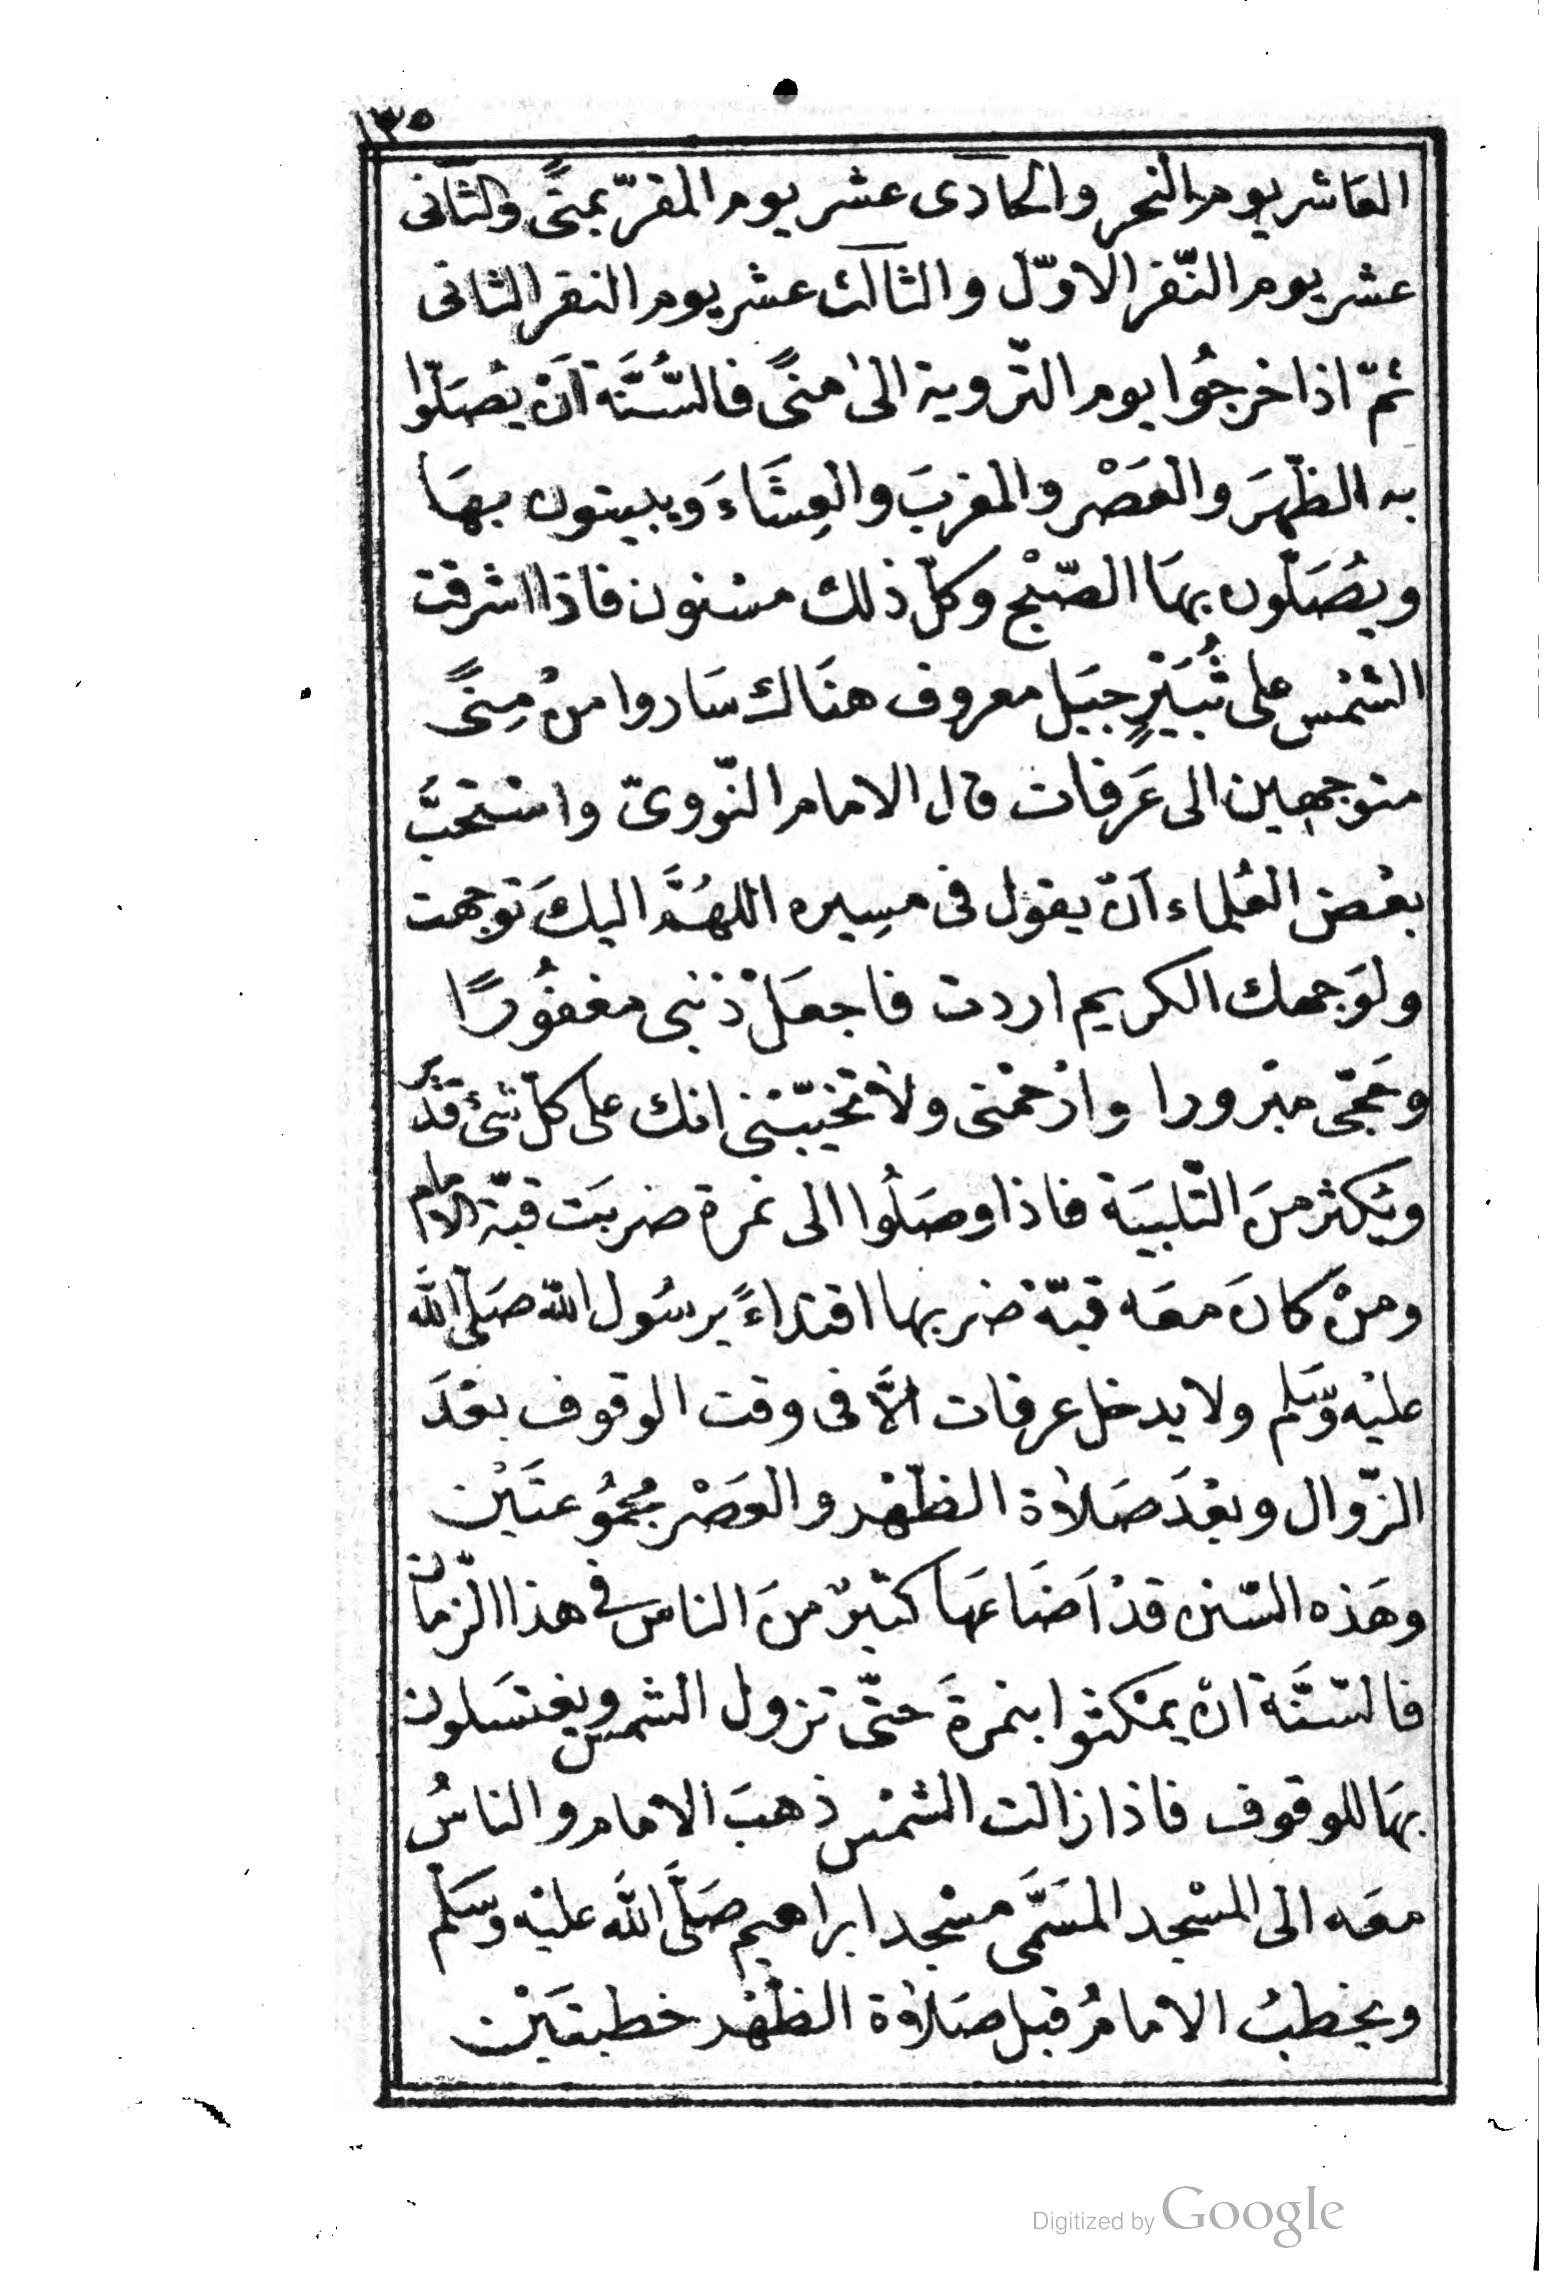 ١٣٥
العَاشر يوم النحر والحآدى عشر يوم المقرّ بمنًى والثآنى
عشر يوم النّفر الاوّل والثالث عشر يوم النفر الثانى
ثمّ اذا خرجُوا يوم التّروية الىٰ منىً فالسُّنَّة اَنْ يُصَلّوا
به الظّهرَ والعَصْر والمغربَ والعِشَاءَ ويبيتون بهَا
ويُصَلّون بهَا الصّبْح وكلّ ذلك مسْنون فاذا اشرقت
الشمْس على ثُبَيْرٍ جبَل معروف هنَاك سَاروا منْ مِنىً
متوجهين الى عَرفات قال الامام النّووىّ واسْتحَبَّ
بعْض العُلماء اَنْ يقول فى مسِيره اللهُمَّ اليكَ توجهت
ولوَجهك الكريم اردت فاجعَلْ ذنبى مغفُورًا
وحَجّى مبْرورا وارْحمْنى ولاٰ تخيّبْنى انك على كلّ شئ قدير
ويكثر منَ التّلبيَة فاذا وصَلُوا الى نمرة ضربَت قبّة الامام
ومنْ كانَ معَه قبّة ضربها اقتداءً برسُول الله صَلّى الله
عليْه وسَّلم ولا يدخل عرفات الَّا فى وقت الوقوف بعْدَ
الزّوال وبعْدَ صَلاٰة الظّهْر والعَصْر مجُمُوعتَيْن
وهَذه السّنن قدْ اَضَاعَهَا كثيرٌ منَ الناس فى هذا الزّمان
فالسّنَّة انْ يمْكثوا بنمرةَ حتّى تزول الشمس ويغتسَلون
بهَا للوقوف فاذا زالت الشمْس ذهبَ الامام والناسُ
معَه الى المسْجد المسَمَّى مسْجد ابراهيم صَلَّى اللهَ عليْه وسَّلم
ويخطبُ الامامُ قبل صَلاٰة الظّهْر خطبتَيْن
Digitized by Google